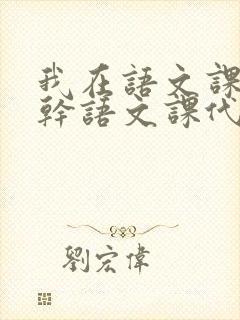 我在語文課
幹語文課代
劉宏偉